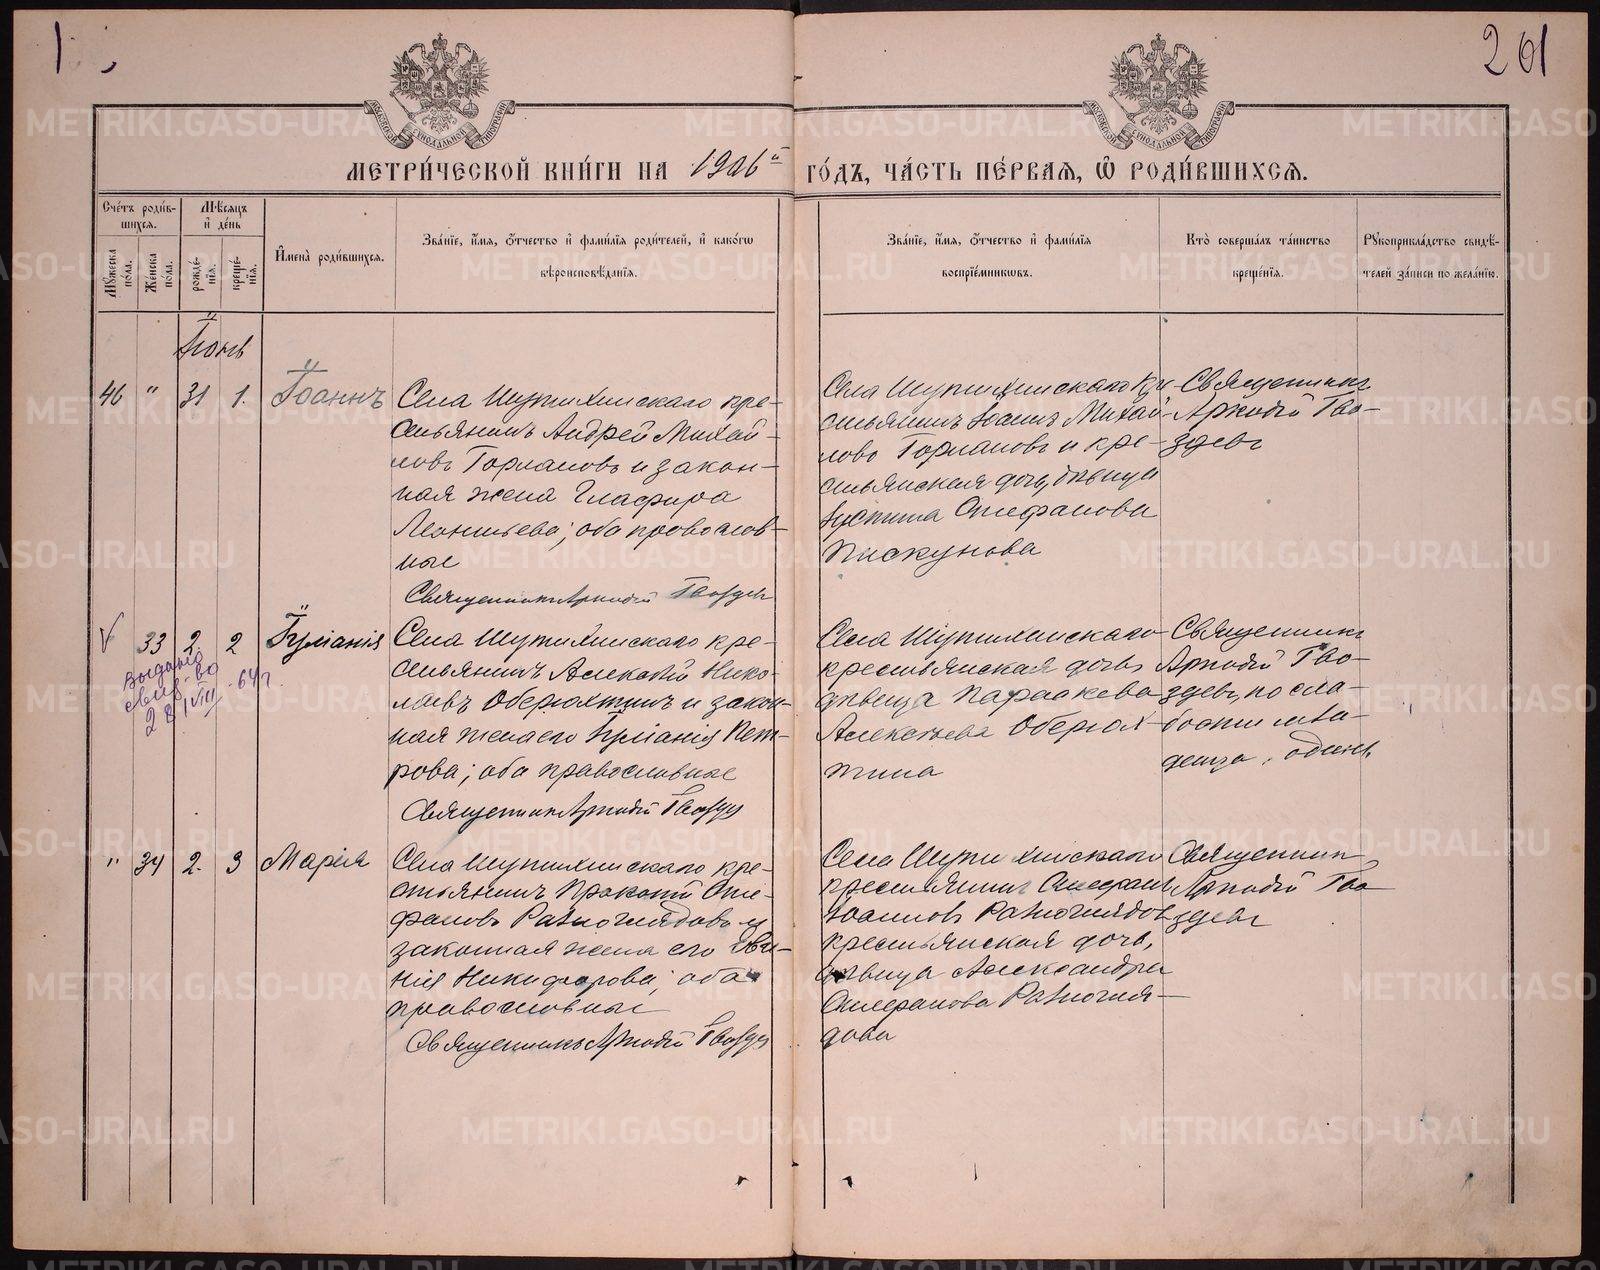 1
201
МЕТРИЧЕСКОЙ КНИГИ НА 1906й ГОДЪ, ЧАСТЬ ПЕРВАЯ, Ѡ РОДИВШИХСЯ.
Счетъ родив-
шихся.
Мужеска пола.
Женска пола.
Мѣсяцъ
и день
рожде-
нія.
креще-
нія.
Имена родившихся.
Званіе, имя, отчество и фамилія родителей, и какогѡ
вѣроисповѣданія.
Званіе, имя, отчество и фамилія
воспріемниковъ.
Кто совершалъ таинство
крещенія.
Рукоприкладство свидѣ-
телей записи по желанію.
Іюнь
46 " 31 1. Іоаннъ
Села Шутихинскаго кре-
стьянинъ Андрей Михай-
ловъ Горлановъ и закон-
ная жена Глафира
Леонтьева; оба православ-
ные
Священникъ Аркадій Гвоздев
Села Шутихинскаго кре-
стьянинъ Іоаннъ Михай-
ловъ Горлановъ и кре-
стьянская дочь, дѣвица
Іустина Стефанова
Пискунова
Священникъ
Аркадій Гво-
здевъ
33 2. 2 Іуліанія
выдано
свид-во
28/VII-64г.
Села Шутихинскаго кре-
стьянинъ Алексій Нико-
лаевъ Оберюхтинъ и закон-
ная жена его Іуліанія Пет-
рова; оба православные
Священник Аркадій Гвоздев
Села Шутихинскаго
крестьянская дочь,
дѣвица Параскева
Алексѣева Оберюх-
тина
Священникъ
Аркадій Гво-
здевъ, по сла-
бости мла-
денца, одинъ
" 34 2. 3 Марія
Села Шутихинскаго кре-
стьянинъ Прокопій Сте-
фановъ Разноглядовъ и
законная жена его Евге-
нія Никифорова; оба
православные
Священникъ Аркадій Гвоздев
Села Шутихинскаго
крестьянинъ Стефанъ
Іоанновъ Разноглядовъ
крестьянская дочь,
дѣвица Александра
Стефанова Разногля-
дова
Священник
Аркадій Гво-
здевъ